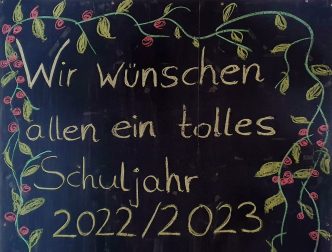 Wir wünschen
allen ein tolles
Schuljahr
2022/2023